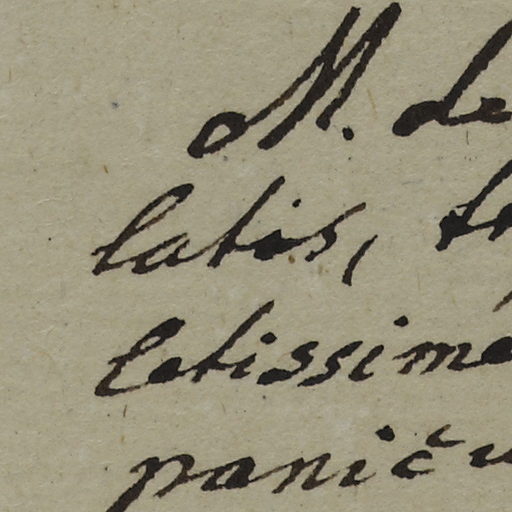 M. de
latis, tr
letissimé
paniču